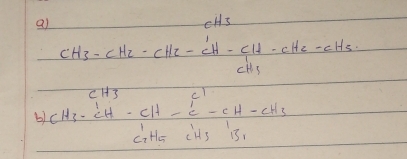 a)
CH3
CH3 - CH2 - CH2 - CH - CH - CH2 - CH3.
CH3
CH3 Cl
b) CH3 - CH - CH - C - CH - CH3
C2H5 CH3 Br